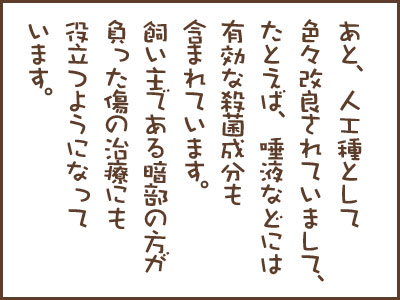 あと、人工種として
色々改良されていまして、
たとえば、唾液などには
有効な殺菌成分も
含まれています。
飼い主である暗部の方が
負った傷の治療にも
役立つようになって
います。